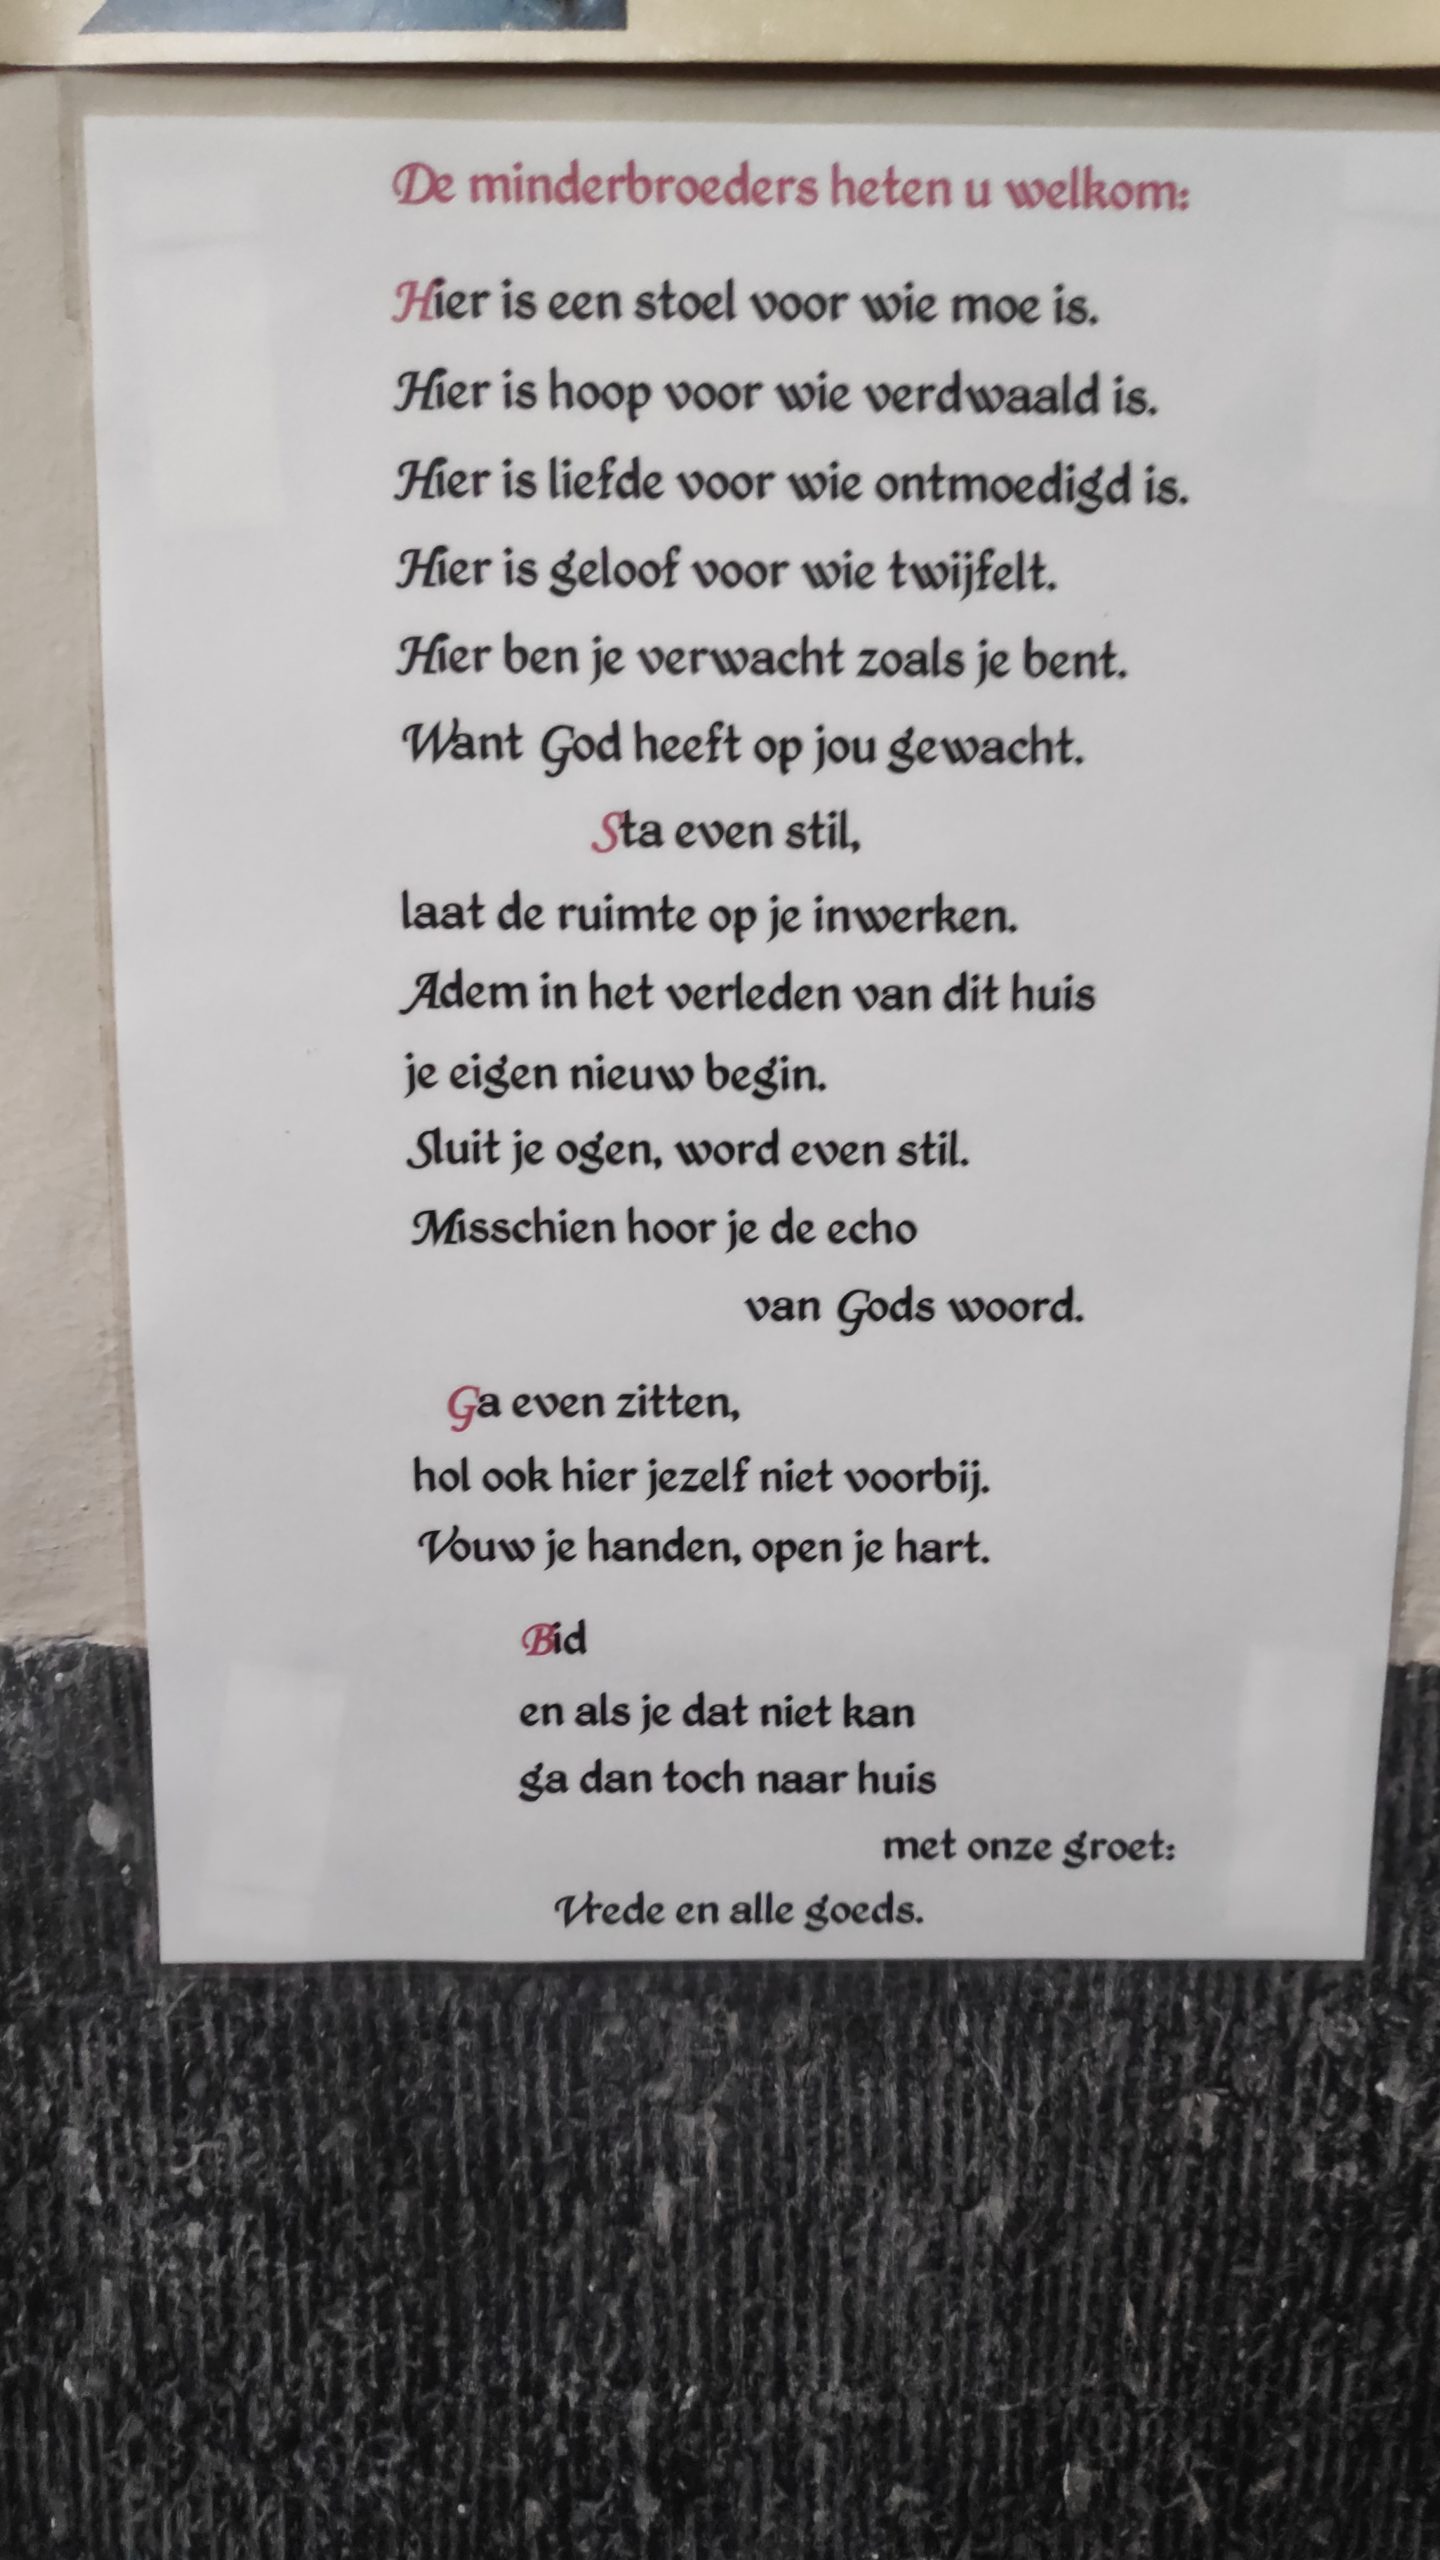 De minderbroeders heten u welkom:
Hier is een stoel voor wie moe is.
Hier is hoop voor wie verdwaald is.
Hier is liefde voor wie ontmoedigd is.
Hier is geloof voor wie twijfelt.
Hier ben je verwacht zoals je bent.
Want God heeft op jou gewacht.
Sta even stil,
laat de ruimte op je inwerken.
Adem in het verleden van dit huis
je eigen nieuw begin.
Sluit je ogen, word even stil.
Misschien hoor je de echo
van Gods woord.
Ga even zitten,
hol ook hier jezelf niet voorbij.
Vouw je handen, open je hart.
Bid
en als je dat niet kan
ga dan toch naar huis
met onze groet:
Vrede en alle goeds.